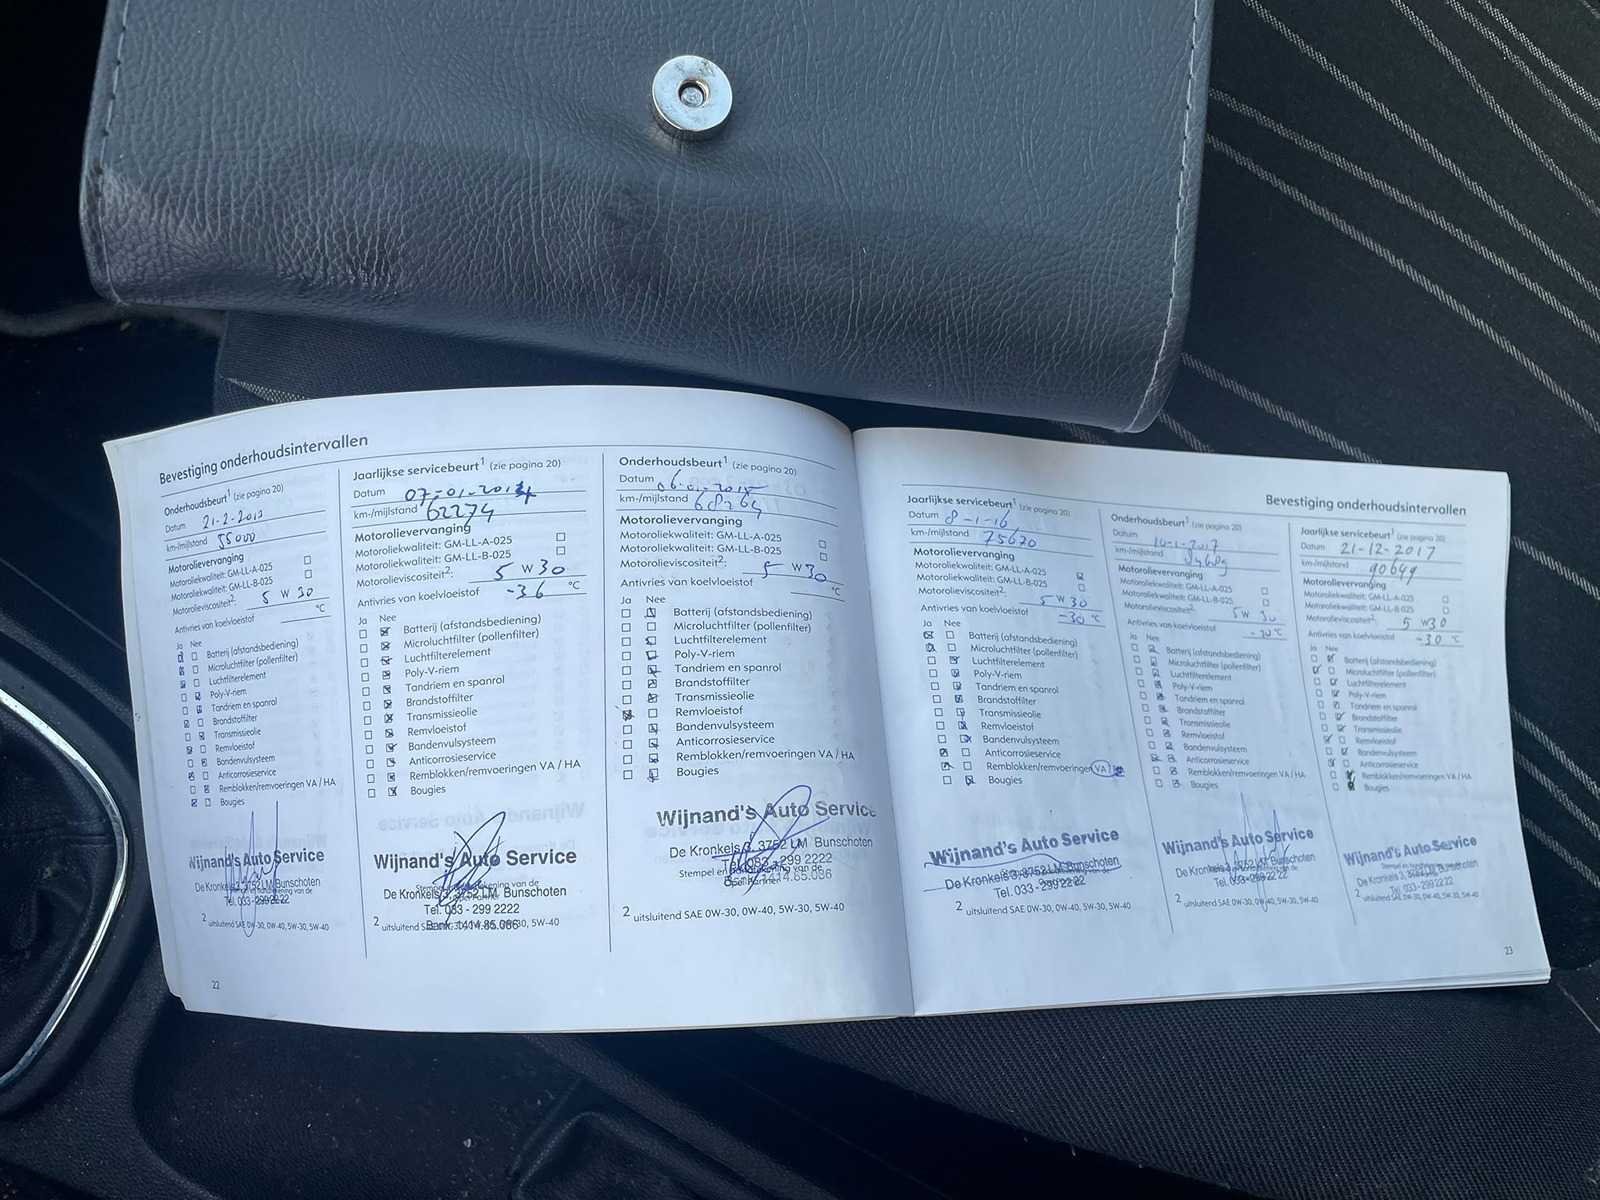 Bevestiging onderhoudsintervallen
Onderhoudsbeurt¹ (zie pagina 20)
Datum 21-2-2013
km-/mijlstand 55000
Motorolievervanging
Motoroliekwaliteit: GM-LL-A-025
Motoroliekwaliteit: GM-LL-B-025
Motorolieviscositeit²: 5 W 30
Antivries van koelvloeistof °C
Ja Nee
Batterij (afstandsbediening)
Microluchtfilter (pollenfilter)
Luchtfilterelement
Poly-V-riem
Tandriem en spanrol
Brandstoffilter
Transmissieolie
Remvloeistof
Bandenvulsysteem
Anticorrosieservice
Remblokken/remvoeringen VA / HA
Bougies
Wijnand's Auto Service
De Kronkels 3, 3752 LM Bunschoten
Tel. 033 - 299 22 22
² uitsluitend SAE 0W-30, 0W-40, 5W-30, 5W-40
22
Jaarlijkse servicebeurt¹ (zie pagina 20)
Datum 07-01-2014
km-/mijlstand 62274
Motorolievervanging
Motoroliekwaliteit: GM-LL-A-025
Motoroliekwaliteit: GM-LL-B-025
Motorolieviscositeit²: 5 W 30
Antivries van koelvloeistof -36 °C
Ja Nee
Batterij (afstandsbediening)
Microluchtfilter (pollenfilter)
Luchtfilterelement
Poly-V-riem
Tandriem en spanrol
Brandstoffilter
Transmissieolie
Remvloeistof
Bandenvulsysteem
Anticorrosieservice
Remblokken/remvoeringen VA / HA
Bougies
Wijnand's Auto Service
De Kronkels 3, 3752 LM Bunschoten
Tel. 033 - 299 2222
Bank: 1414.85.086
² uitsluitend 5W-40
Onderhoudsbeurt¹ (zie pagina 20)
Datum 06-01-2015
km-/mijlstand 68264
Motorolievervanging
Motoroliekwaliteit: GM-LL-A-025
Motoroliekwaliteit: GM-LL-B-025
Motorolieviscositeit²: 5 W 30
Antivries van koelvloeistof °C
Ja Nee
Batterij (afstandsbediening)
Microluchtfilter (pollenfilter)
Luchtfilterelement
Poly-V-riem
Tandriem en spanrol
Brandstoffilter
Transmissieolie
Remvloeistof
Bandenvulsysteem
Anticorrosieservice
Remblokken/remvoeringen VA / HA
Bougies
Wijnand's Auto Service
De Kronkels 3, 3752 LM Bunschoten
Tel. 033 - 299 2222
Stempel en handtekening van de
Opel Partner
² uitsluitend SAE 0W-30, 0W-40, 5W-30, 5W-40
Bevestiging onderhoudsintervallen
Jaarlijkse servicebeurt¹ (zie pagina 20)
Datum 8-1-16
km-/mijlstand 75620
Motorolievervanging
Motoroliekwaliteit: GM-LL-A-025
Motoroliekwaliteit: GM-LL-B-025
Motorolieviscositeit²: 5 W 30
Antivries van koelvloeistof -30 °C
Ja Nee
Batterij (afstandsbediening)
Microluchtfilter (pollenfilter)
Luchtfilterelement
Poly-V-riem
Tandriem en spanrol
Brandstoffilter
Transmissieolie
Remvloeistof
Bandenvulsysteem
Anticorrosieservice
Remblokken/remvoeringen VA
Bougies
Wijnand's Auto Service
De Kronkels 3, 3752 LM Bunschoten
Tel. 033 - 299 22 22
² uitsluitend SAE 0W-30, 0W-40, 5W-30, 5W-40
Onderhoudsbeurt¹ (zie pagina 20)
Datum 2017
km-/mijlstand
Motorolievervanging
Motoroliekwaliteit: GM-LL-A-025
Motoroliekwaliteit: GM-LL-B-025
Motorolieviscositeit²: 5W 30
Antivries van koelvloeistof -30°C
Ja Nee
Batterij (afstandsbediening)
Microluchtfilter (pollenfilter)
Luchtfilterelement
Poly-V-riem
Tandriem en spanrol
Brandstoffilter
Transmissieolie
Remvloeistof
Bandenvulsysteem
Anticorrosieservice
Remblokken/remvoeringen VA / HA
Bougies
Wijnand's Auto Service
De Kronkels 3, 3752 LM Bunschoten
Tel. 033 - 299 22 22
² uitsluitend SAE 0W-30, 0W-40, 5W-30, 5W-40
Jaarlijkse servicebeurt¹ (zie pagina 20)
Datum 21-12-2017
km-/mijlstand 90649
Motorolievervanging
Motoroliekwaliteit: GM-LL-A-025
Motoroliekwaliteit: GM-LL-B-025
Motorolieviscositeit²: 5 W30
Antivries van koelvloeistof -30 °C
Ja Nee
Batterij (afstandsbediening)
Microluchtfilter (pollenfilter)
Luchtfilterelement
Poly-V-riem
Tandriem en spanrol
Brandstoffilter
Transmissieolie
Remvloeistof
Bandenvulsysteem
Anticorrosieservice
Remblokken/remvoeringen VA / HA
Bougies
Wijnand's Auto Service
Stempel en handtekening van de
De Kronkels 3, 3752 LM Bunschoten
Tel. 033 - 299 22 22
² uitsluitend SAE 0W-30, 0W-40, 5W-30, 5W-40
23